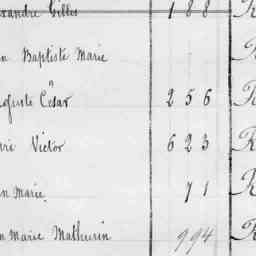 xandre Gilles 188 R
n Baptiste Marie R
uguste César 256 R
nri Victor 623 R
n Marie. 71 R
n Marie Mathurin 994 R